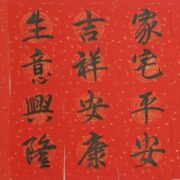 家宅平安
吉祥安康
生意興隆